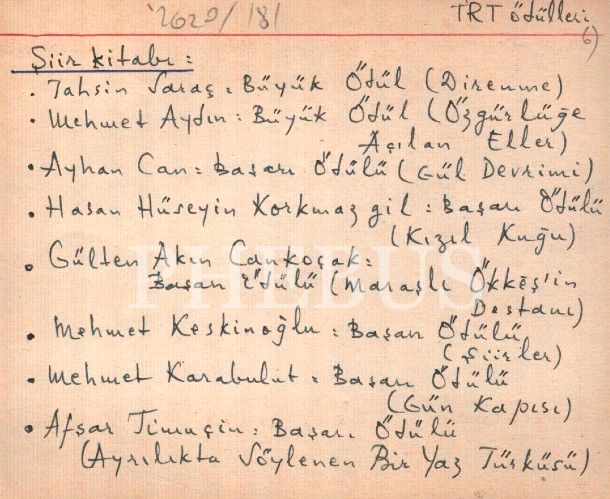 2629/181
TRT ödülleri
6)
Şiir kitabı :
. Tahsin Saraç : Büyük Ödül (Direnme)
. Mehmet Aydın : Büyük Ödül (Özgürlüğe
Açılan Eller)
. Ayhan Can : Başarı Ödülü (Gül Devrimi)
. Hasan Hüseyin Korkmazgil : Başarı Ödülü
(Kızıl Kuğu)
. Gülten Akın Cankoçak :
Başarı Ödülü (Maraşlı Ökkeş'in
Destanı)
. Mehmet Keskinoğlu : Başarı Ödülü
(Şiirler)
. Mehmet Karabulut : Başarı Ödülü
(Gün Kapısı)
. Afşar Timuçin : Başarı Ödülü
(Ayrılıkta Söylenen Bir Yaz Türküsü)
PHEBUS